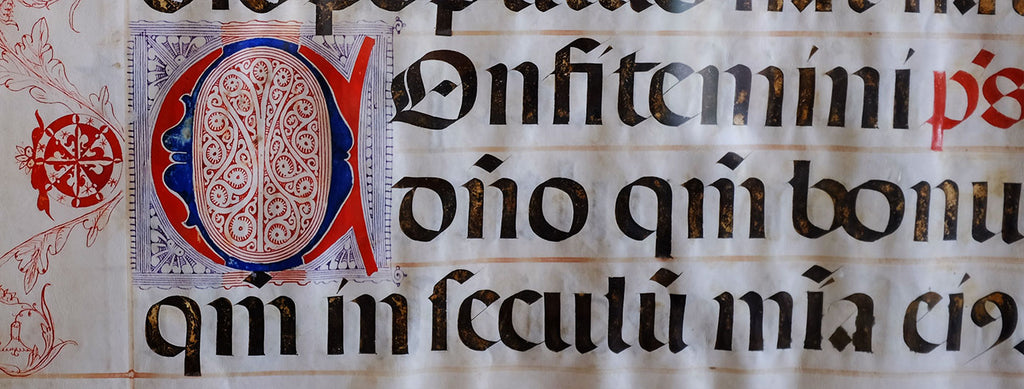 COnfitemini ps̄
dño qm̄ bonu
qm̄ in ſeculū mīa eiꝰ